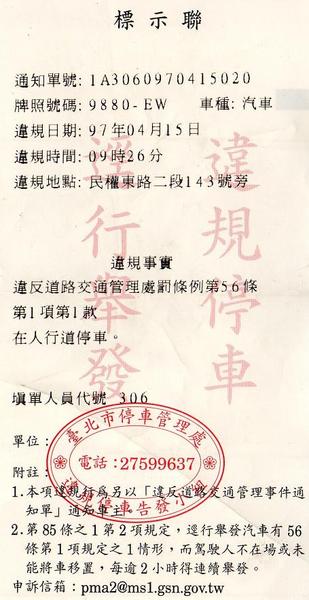 標示聯
通知單號: 1A3060970415020
牌照號碼: 9880-EW 車種: 汽車
違規日期: 97年04月15日
違規時間: 09時26分
違規地點: 民權東路二段143號旁
違規停車
逕行舉發
違規事實
違反道路交通管理處罰條例第56條
第1項第1款
在人行道停車。
填單人員代號 306
單位:
臺北市停車管理處
電話:27599637
違規停車告發小組
附註:
1.本項違規行為另以「違反道路交通管理事件通
知單」通知車主。
2.第85條之1第2項規定，逕行舉發汽車有56
條第1項規定之1情形，而駕駛人不在場或未
能將車移置，每逾2小時得連續舉發。
申訴信箱：pma2@ms1.gsn.gov.tw